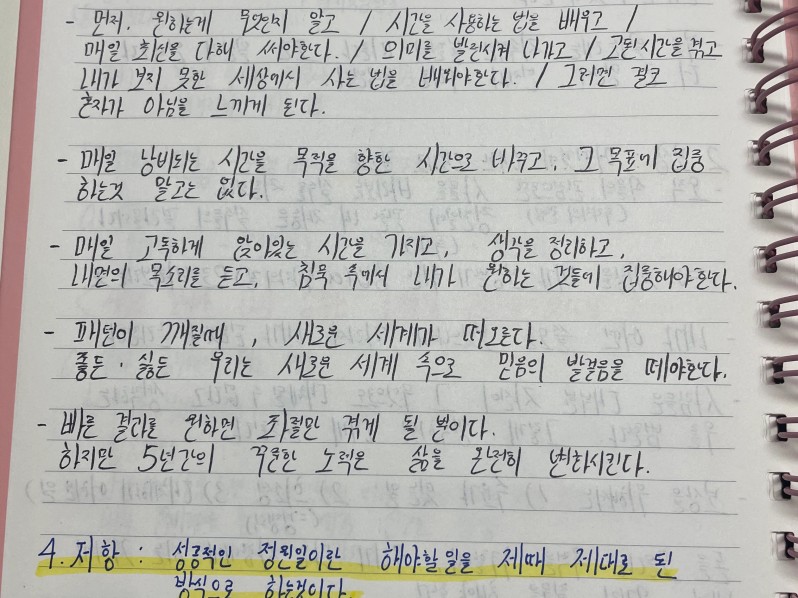 - 먼저, 원하는게 무엇인지 알고 / 시간을 사용하는 법을 배우고 /
매일 최선을 다해 써야한다. / 의미를 발전시켜 나가고 / 고된 시간을 겪고
내가 보지 못한 세상에서 사는 법을 배워야한다. / 그러면 결코
혼자가 아님을 느끼게 된다.
- 매일 낭비되는 시간을 목적을 향한 시간으로 바꾸고, 그 목표에 집중
하는것 말고는 없다.
- 매일 고독하게 앉아있는 시간을 가지고, 생각을 정리하고,
내면의 목소리를 듣고, 침묵 속에서 내가 원하는 것들에 집중해야한다.
- 패턴이 깨질때, 새로운 세계가 떠오른다.
좋든·싫든 우리는 새로운 세계 속으로 믿음의 발걸음을 떼야한다.
- 빠른 결과를 원하면 좌절만 겪게 될 뿐이다.
하지만 5년간의 꾸준한 노력은 삶을 완전히 변화시킨다.
4. 저항 : 성공적인 정원일이란 해야할 일을 제때 제대로 된
방식으로 하는것이다.